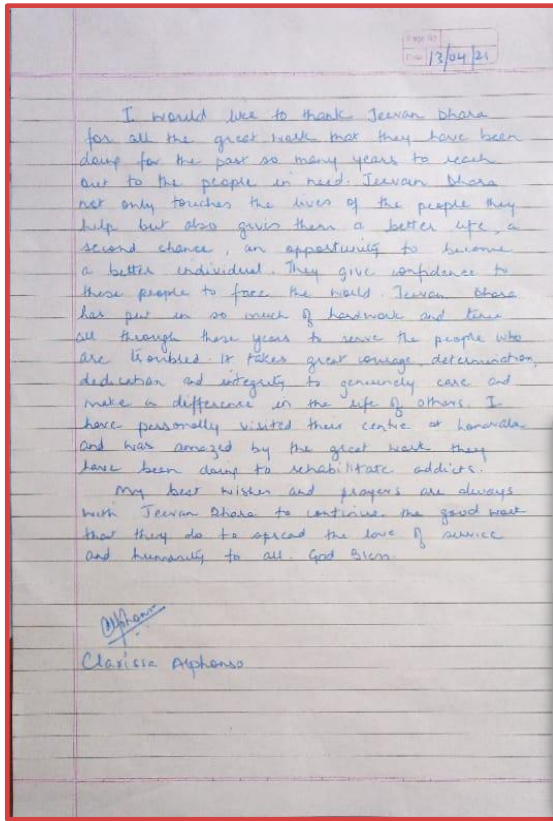 Page No.
Date 13/04/21
I would like to thank Jeevan Dhara
for all the great work that they have been
doing for the past so many years to reach
out to the people in need. Jeevan Dhara
not only touches the lives of the people they
help but also gives them a better life, a
second chance, an opportunity to become
a better individual. They give confidence to
these people to face the world. Jeevan Dhara
has put in so much of hardwork and time
all through these years to serve the people who
are troubled. It takes great courage, determination,
dedication and integrity to genuinely care and
make a difference in the life of others. I
have personally visited their centre at Lonavala
and was amazed by the great work they
have been doing to rehabilitate addicts.
My best wishes and prayers are always
with Jeevan Dhara to continue the good work
that they do to spread the love of service
and humanity to all. God Bless.
Alphonso
Clarissa Alphonso